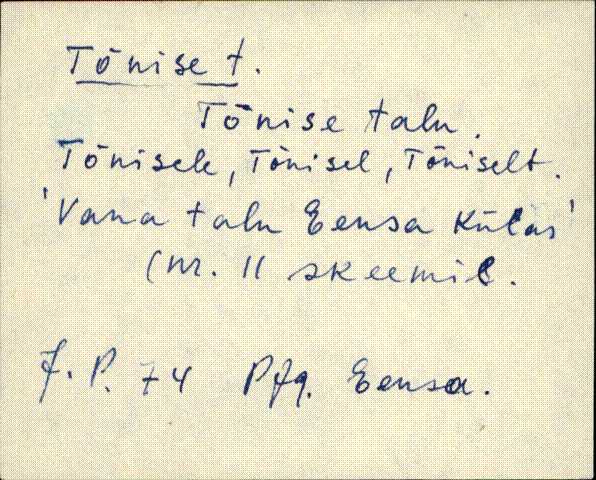 Tõnise t.
Tõnise talu.
Tõnisele, Tõnisel, Tõniselt.
'Vana talu Eensa külas'
(nr. 11 skeemil.
J. P. 74 Pfg. Eensa.